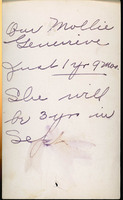 Our Mollie
Genevieve
Just 1 yr 9 mos.
She will
be 3 yr in
Sep